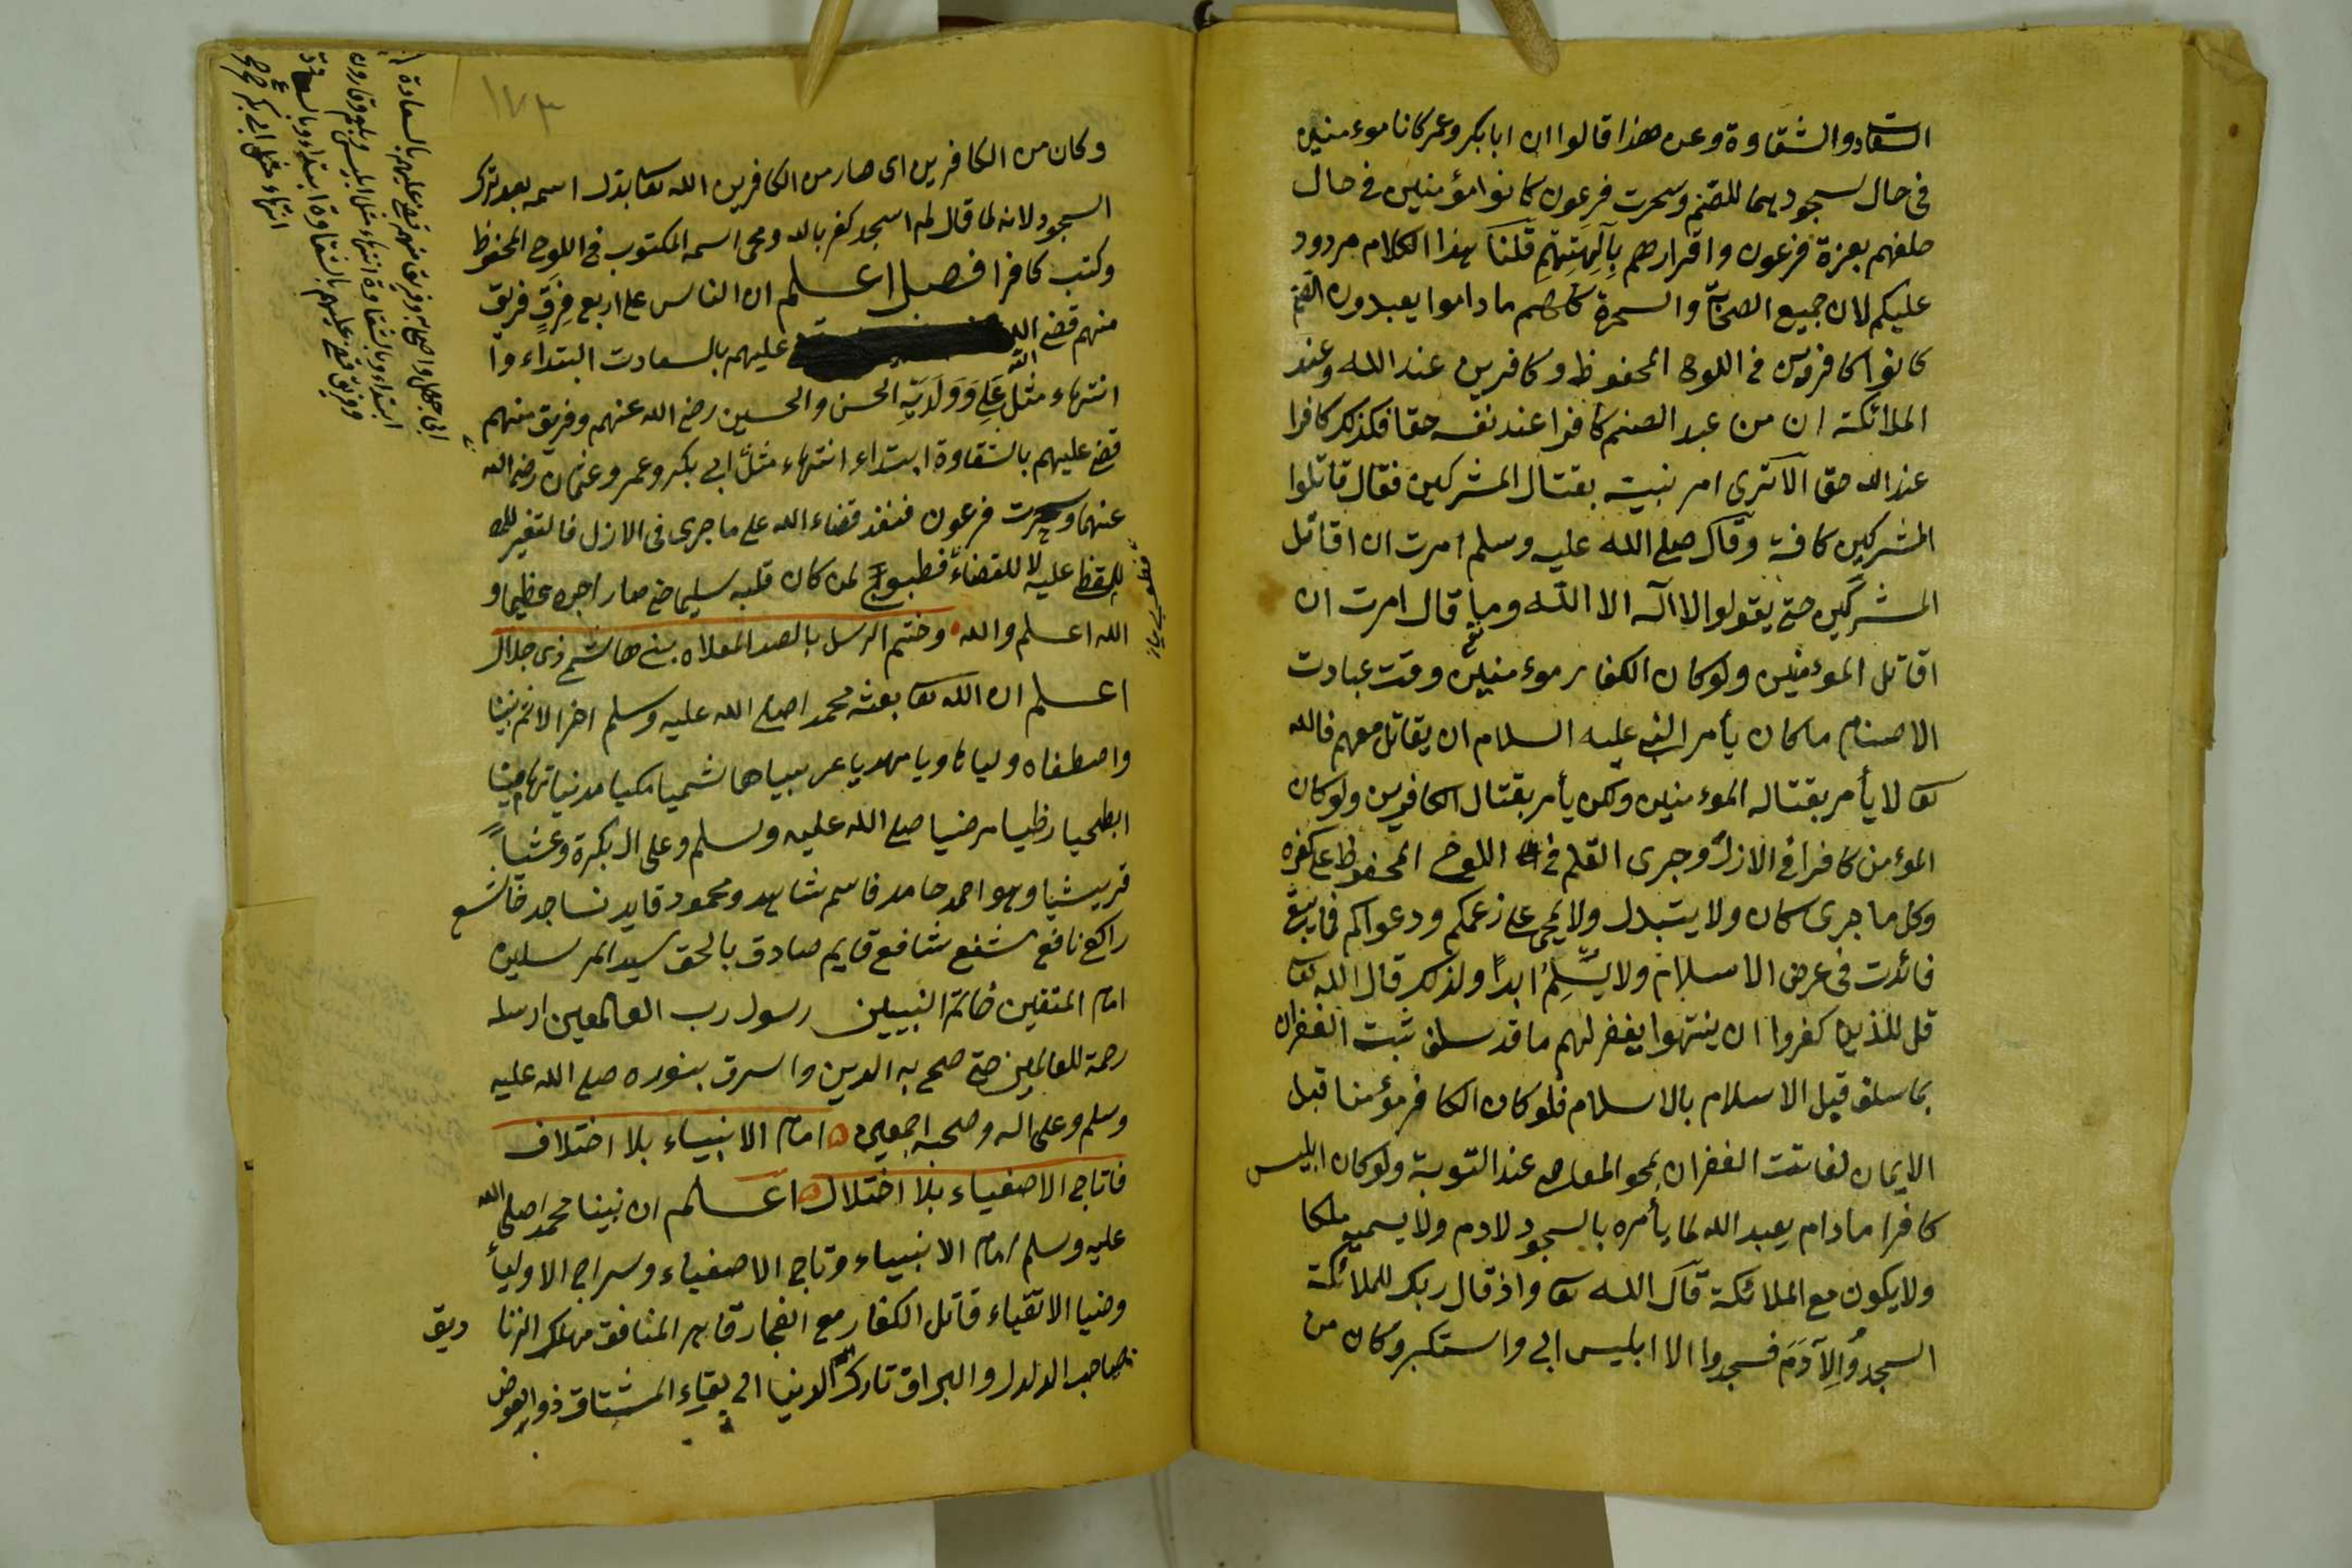 السعادة والشقاوة وعن هذا قالوا ان ابا بكر وعمر كانا موءمنين
فى حال سجودهما للصنم وسحرت فرعون كانوا مؤمنين فى حال
حلفهم بعزة فرعون واقرارهم بِآلِهَتِهِم قلنا هذا الكلام مردود
عليكم لان جميع الصحابة والسحرة كلهم ما داموا يعبدون الصنم
كانوا كافرين فى اللوح المحفوظ وكافرين عند الله وعند
الملائكة ان من عبد الصنم كافرا عند نفسه حقا فكذلك كافرا
عند الله حقا الا ترى امر نبيه بقتال المشركين فقال قاتلوا
المشركين كافة وقال صلى الله عليه وسلم امرت ان اقاتل
المشركين حتى يقولوا لا اله الا الله وما قال امرت ان
اقاتل الموءمنين ولو كان الكفار موءمنين وقت عبادت
الاصنام ما كان يأمر النبى عليه السلام ان يقاتل معهم فالله
تعا لا يأمر بقتاله الموءمنين ولكن يأمر بقتال الكافرين ولو كان
الموءمن كافرا فى الازل وجرى القلم فى اللوح المحفوظ على كفره
وكل ما جرى كان ولا يتبدل ولا يمحى على زعمكم ودعواكم فما يبقى
فائدت فى عرض الاسلام ولا يُسْلِمُ ابداً ولذلك قال الله تعا
قل للذين كفروا ان ينتهوا يغفر لهم ما قد سلف ثبت الغفران
بما سلف قبل الاسلام بالاسلام فلو كان الكافر مؤمنا قبل
الايمان لفاتت الغفران بمحو المعاصى عند التوبة ولو كان ابليس
كافرا ما دام يعبد الله لما يأمره بالسجود لادم ولا يسميه ملكا
ولا يكون مع الملائكة قال الله تعا واذ قال ربك للملائكة
اسجدُوا لِآدَمَ فسجدوا الا ابليس ابى واستكبر وكان من
١٧٣
وكان من الكافرين اى صار من الكافرين الله تعا بدل اسمه بعد ترك
السجود لانه لما قال له اسجد كفر بالله ومحى اسمه المكتوب فى اللوح المحفوظ
وكتب كافرا فصل اعلم ان الناس على اربع فِرَقٍ فريق
منهم قضى الله عليهم بالسعادت ابتداء وا
انتهاء مثل عَلِى وَوَلَدَيْهِ الحسن والحسين رضى الله عنهم وفريق منهم
قضى عليهم بالشقاوة ابتداء انتهاء مثل ابى بكر وعمر وعثمان رضى الله
عنهما وسحرت فرعون فنفذ قضاء الله على ما جرى فى الازل فالتغير لله
للمقضى عليه لا للقضاء فطبوبى لمن كان قلبه سليما حتى صار اجره عظيما و
الله اعلم والله وختم الرسل بالصدر المعلاه بنى هاشم ذى جلال
اعلم ان الله تعا بعث محمدا صلى الله عليه وسلم اخر الا ثم نبينا
واصطفاه وليا هاويا مهديا عربيا هاشميا مكيا مدنيا تهامينا
ابطحيا رظيا مرضيا صلى الله عليه وسلم وعلى اله بكرة وعشياً
قريشيا وهو احمد حامد قاسم شاهد ومحمود قايد ساجد خاشع
راكع نافع شفع شافع قايم صادق بالحق سيد المرسلين
امام المتقين خاتم النبيين رسول رب العالمعين ارسله
رحمة للعالمين حتى صلح به الدين واسرق بنوره صلى الله عليه
وسلم وعلى اله وصحبه اجمعين امام الانبياء بلا اختلاف
فاتاج الاصفياء بلا اختلال اعلم ان نبينا محمدا صلى الله
عليه وسلم امام الانبياء وتاج الاصفياء وسراج الاولياء
وضيا الاتقياء قاتل الكفار مع الفجار قاهر المنافق مهلك الزنا ديق
صاحب الدلدل والبراق تارك الدنيا الى بقاء المشتاق ذو العوض
ابى جهل واصحابه وفريق منهم قضى عليهم بالسعادة
ابتداء وبالشقاوة انتهاء مثل ابليس وبلعم وقارون
وفريق قضى عليهم بالشقاوة ابتداء وبالسعادة
انتهاء مثل ابى بكر